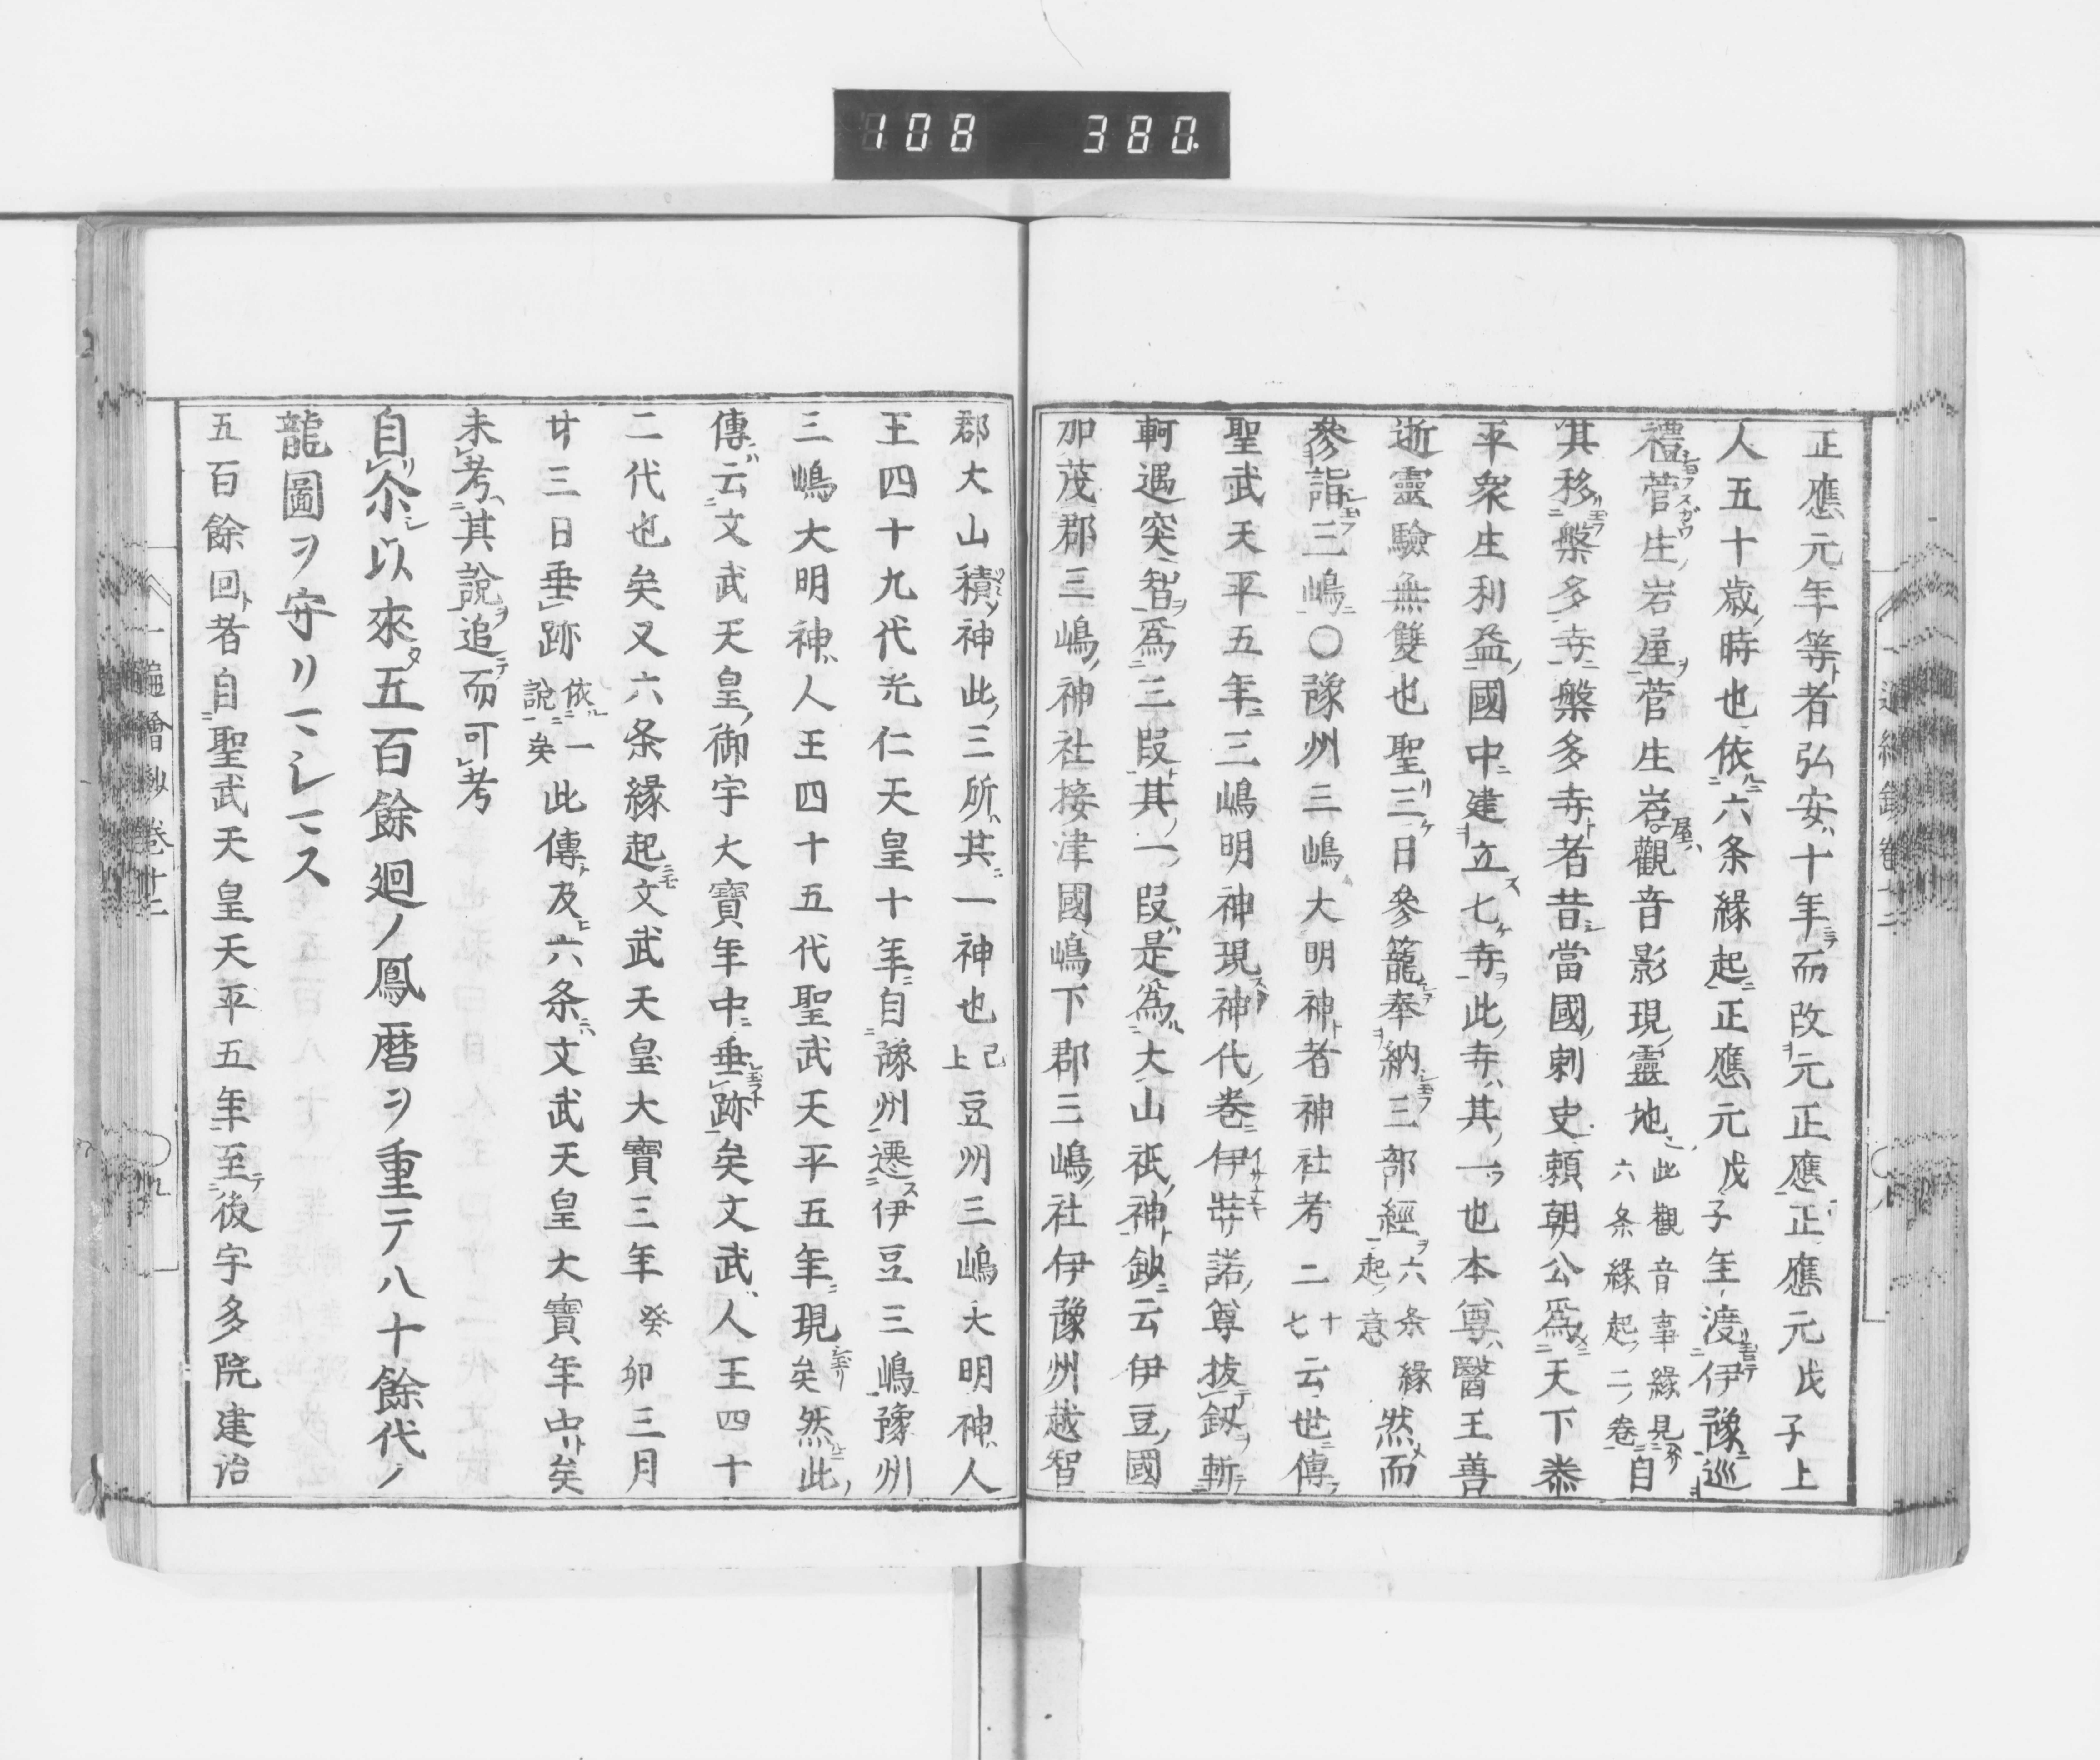 108 380
正應元年等者弘安十年而改元正應正應元戊子上
人五十歳時也依六条緣起正應元戊子年渡伊豫巡
禮菅生岩屋菅生岩屋觀音影現靈地此觀音事緣見六条緣起二卷自
其移槃多寺槃多寺者昔當國刺史頼朝公爲天下泰
平衆生利益國中建立七寺此寺其一也本尊醫王善
逝靈驗無雙也聖三日參籠奉納三部經六条緣起意然而
參詣三嶋〇豫州三嶋大明神者神社考二十七云世傳
聖武天平五年三嶋明神現神代卷伊弉諾尊拔釼斬
軻遇突智爲三段其一段是爲大山祇神鈔云伊豆國
加茂郡三嶋神社接津國嶋下郡三嶋社伊豫州越智
郡大山積神此三所其一神也已上豆州三嶋大明神人
王四十九代光仁天皇十年自豫州遷伊豆三嶋豫州
三嶋大明神人王四十五代聖武天平五年現矣然此
傳云文武天皇御宇大寶年中垂跡矣文武人王四十
二代也矣又六条緣起文武天皇大寶三年癸卯三月
廿三日垂跡依一說矣此傳及六条文武天皇大寶年中矣
未考其說追而可考
自尒以來五百餘廻ノ鳳暦ヲ重テ八十餘代ノ
龍圖ヲ守リマシマス
五百餘回者自聖武天皇天平五年至後宇多院建治
一遍繪鈔卷十二 九